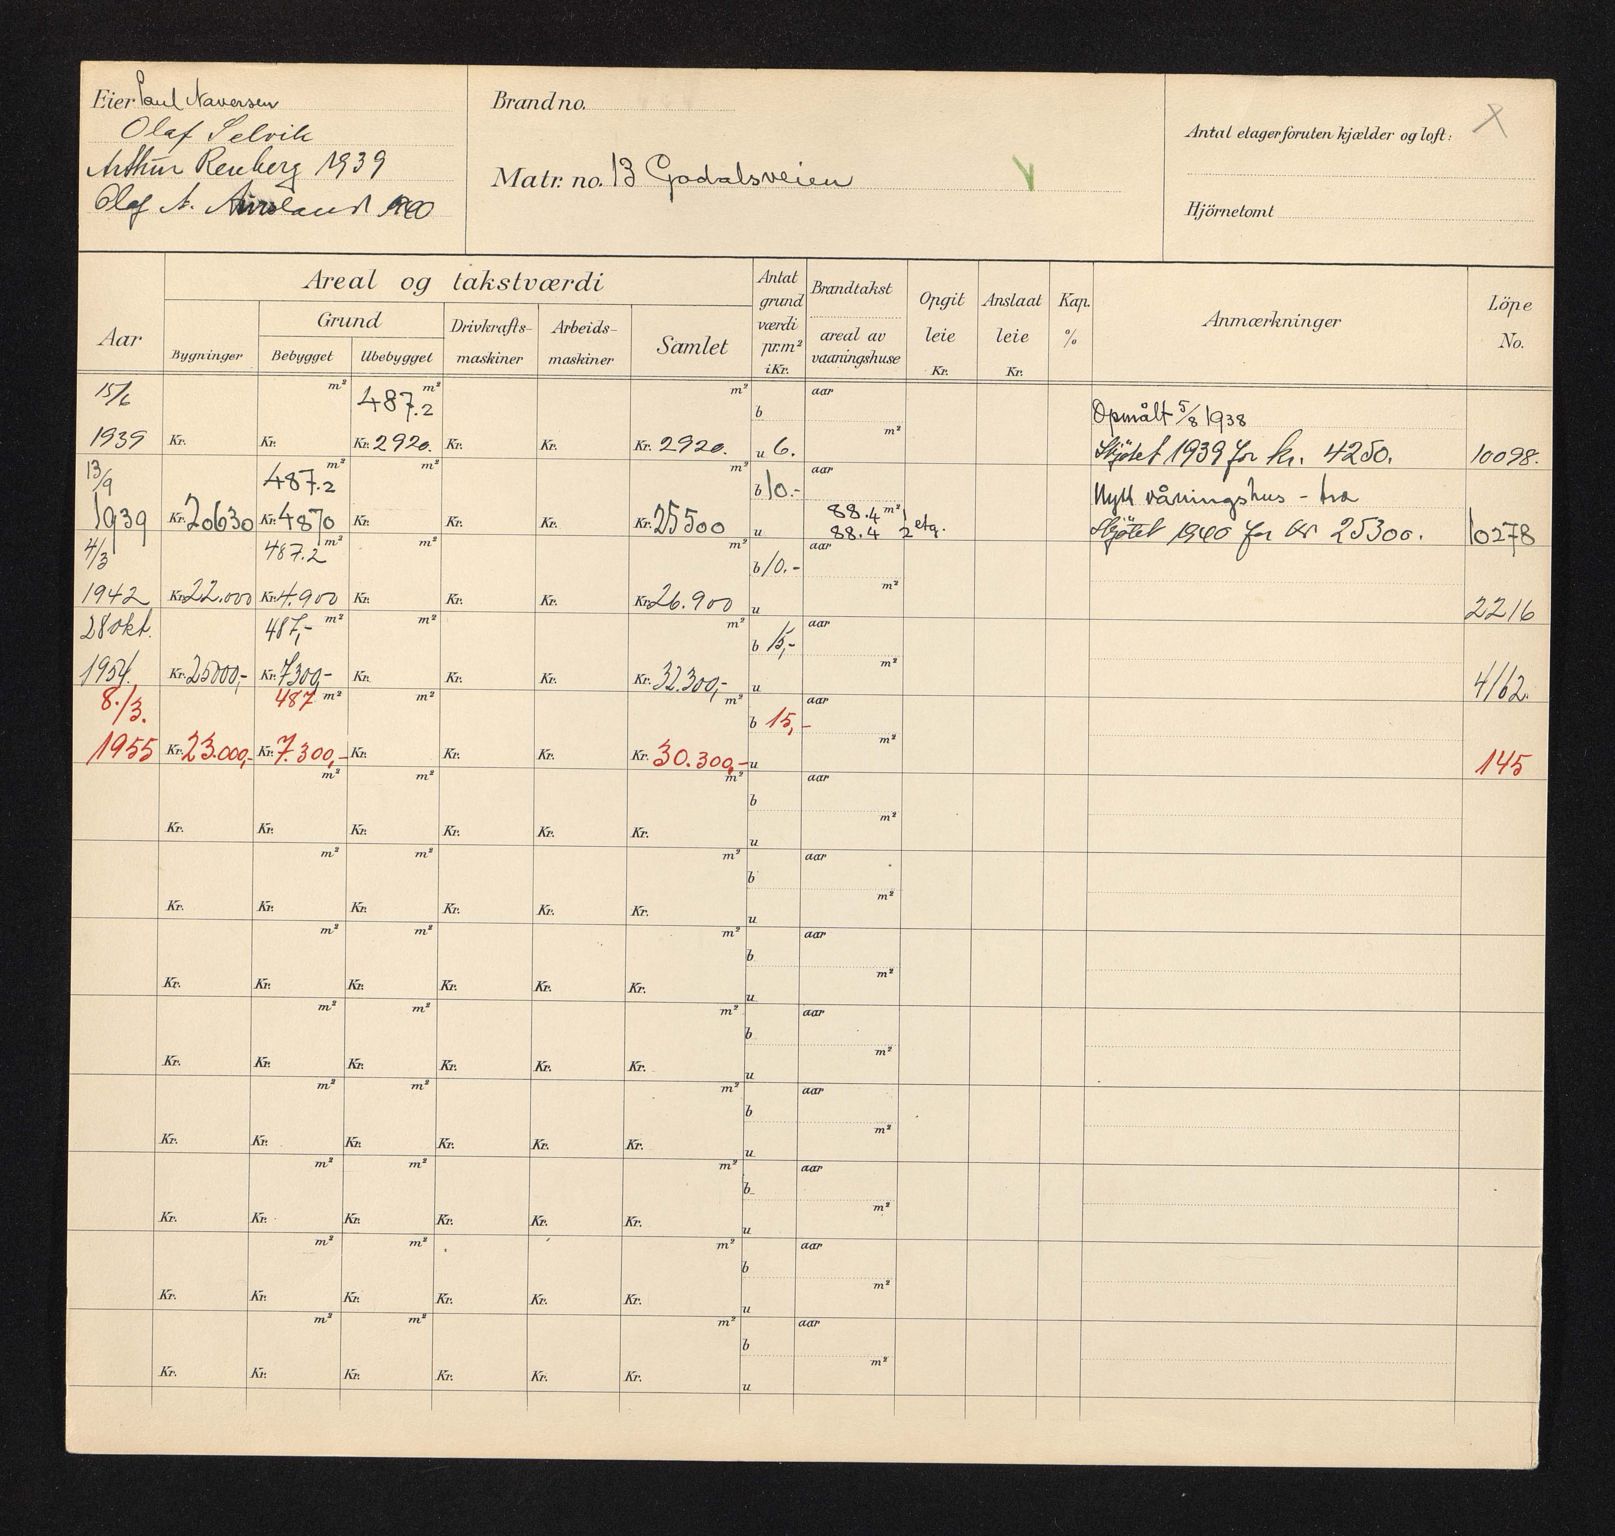 Eier Paul Naversen
Olaf Selvik
Arthur Renberg 1939
Olaf A.
Brand no.
Matr. no. 13 Godalsveien
V
Antal etager foruten kjælder og loft: X
Hjörnetomt
Aar
Areal og takstværdi
Bygninger
Grund
Bebygget
Ubebygget
Drivkrafts-
maskiner
Arbeids-
maskiner
Samlet
Antat
grund
værdi
pr.m²
i Kr.
Brandtakst
areal av
vaaningshuse
Opgit
leie
Kr.
Anslaat
leie
Kr.
Kap.
%
Anmærkninger
Löpe
No.
15/6 m² 487.2 m² m² b aar Opmålt 5/8 1938
1939 Kr. Kr. Kr. 2920. Kr. Kr. Kr. 2920. u 6. m² Skjötet 1939 for kr. 4250. 10098.
13/9 487.2 m² m² m² b 10.- aar Nytt våningshus - tre
1939 Kr. 20630 Kr. 4870 Kr. Kr. Kr. Kr. 25500 u 88.4 m² 88.4 2 etg. Skjötet 1940 for kr 25300. 10278
4/3 487.2 m² m² m² b 10.- aar
1942 Kr. 22.000 Kr. 4.900 Kr. Kr. Kr. Kr. 26.900 u m² 2216
28 okt. 487,- m² m² m² b 15,- aar
1954. Kr. 25000,- Kr. 7300,- Kr. Kr. Kr. Kr. 32.300,- u m² 4162.
8./3. 487 m² m² m² b 15,- aar
1955 Kr. 23.000,- Kr. 7.300,- Kr. Kr. Kr. Kr. 30.300,- u m² 145
m² m² m² b aar
Kr. Kr. Kr. Kr. Kr. Kr. u m²
m² m² m² b aar
Kr. Kr. Kr. Kr. Kr. Kr. u m²
m² m² m² b aar
Kr. Kr. Kr. Kr. Kr. Kr. u m²
m² m² m² b aar
Kr. Kr. Kr. Kr. Kr. Kr. u m²
m² m² m² b aar
Kr. Kr. Kr. Kr. Kr. Kr. u m²
m² m² m² b aar
Kr. Kr. Kr. Kr. Kr. Kr. u m²
m² m² m² b aar
Kr. Kr. Kr. Kr. Kr. Kr. u m²
m² m² m² b aar
Kr. Kr. Kr. Kr. Kr. Kr. u m²